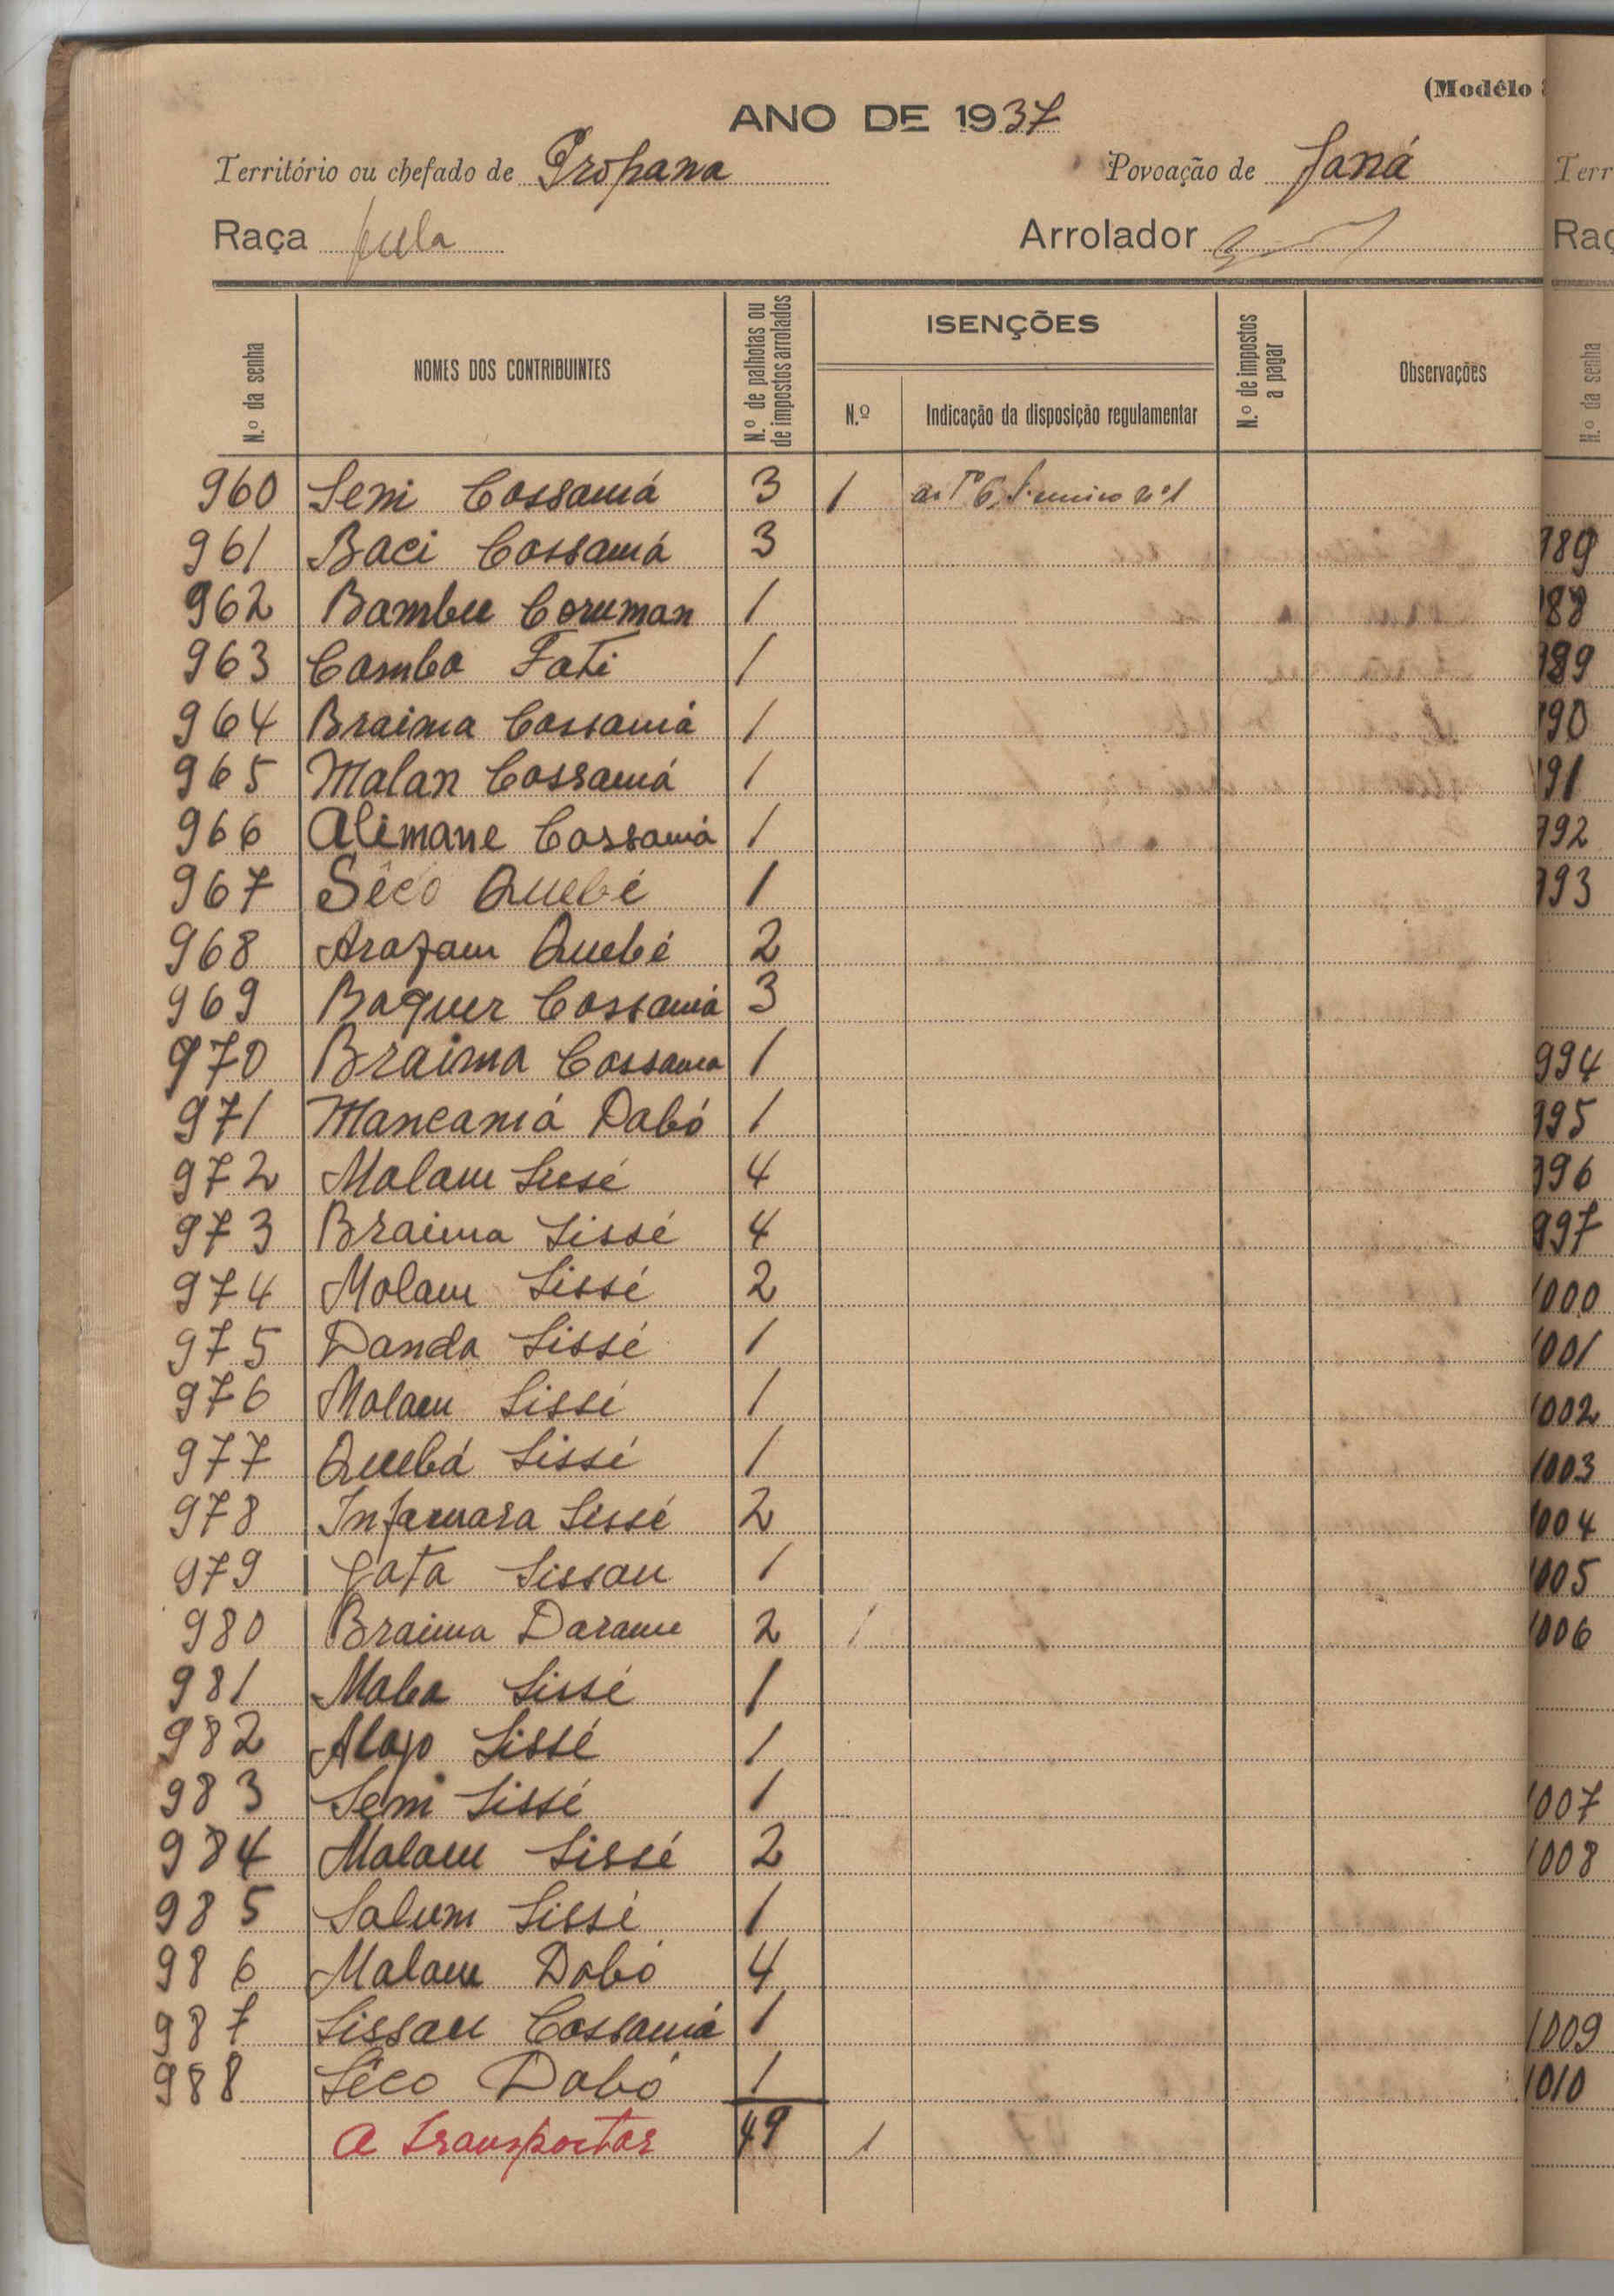 (Modêlo
ANO DE 1937
Território ou chefado de Propana Povoação de Janá
Raça fula Arrolador
N.º da senha NOMES DOS CONTRIBUINTES N.º de palhotas ou de impostos arrolados ISENÇÕES N.º Indicação da disposição regulamentar N.º de impostos a pagar Observações
960 Seni Cossamá 3 1 artº 6, § unico nº1
961 Baci Cossamá 3
962 Bambu Coruman 1
963 Combo Fati 1
964 Braima Cossamá 1
965 Malan Cossamá 1
966 Alimane Cossamá 1
967 Sêco Quebé 1
968 Arafam Quebé 2
969 Baquer Cossamá 3
970 Braima Cossama 1
971 Mancamá Dabó 1
972 Malam Sissé 4
973 Braima Sissé 4
974 Molam Sissé 2
975 Danda Sissé 1
976 Malam Sissé 1
977 Quebá Sissé 1
978 Infamara Sissé 2
979 Jata Sissau 1
980 Braima Darame 2 1
981 Maba Sissé 1
982 Alajo Sissé 1
983 Seni Sissé 1
984 Malam Sissé 2
985 Salum Sissé 1
986 Malam Dabó 4
987 Sissau Cossamá 1
988 Sêco Dabó 1
A transportar 49 1
Terr
Raç
N.º da senha
989
988
989
990
991
992
993
994
995
996
997
1000
1001
1002
1003
1004
1005
1006
1007
1008
1009
1010